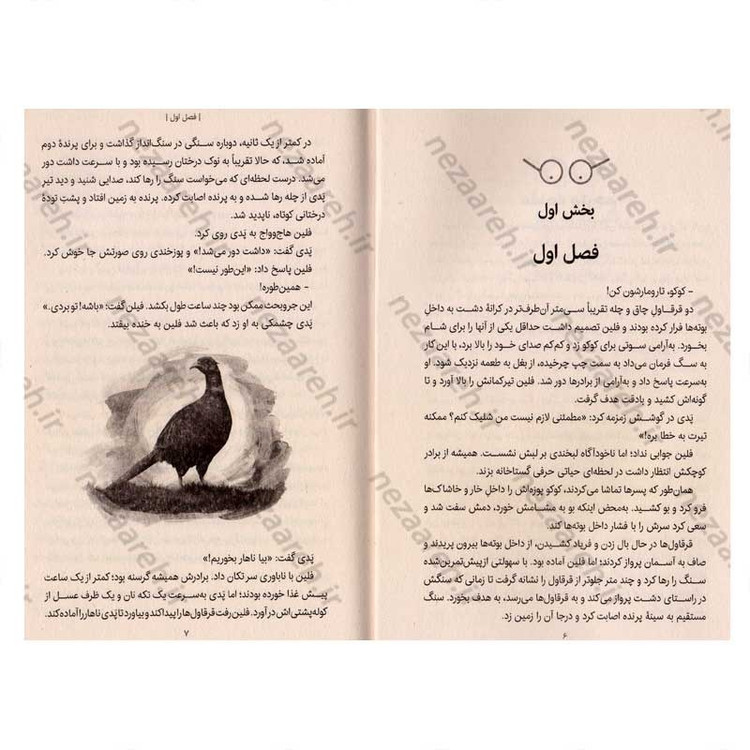 بخش اول
فصل اول
– کوکو، تارومارشون کن!
دو قرقاول چاق و چله تقریباً سی‌متر آن‌طرف‌تر در کرانهٔ دشت به داخل
بوته‌ها فرار کرده بودند و فلین تصمیم داشت حداقل یکی از آنها را برای شام
بخورد. به‌آرامی سوتی برای کوکو زد و کم‌کم صدای خود را بالا برد، با این کار
به سگ فرمان می‌داد به سمت چپ چرخیده، از بغل به طعمه نزدیک شود. او
به‌سرعت پاسخ داد و به‌آرامی از برادرها دور شد. فلین تیرکمانش را بالا آورد و تا
گونه‌اش کشید و بادقت هدف گرفت.
پَدی در گوشش زمزمه کرد: «مطمئنی لازم نیست من شلیک کنم؟ ممکنه
تیرت به خطا بره!»
فلین جوابی نداد؛ اما ناخودآگاه لبخندی بر لبش نشست. همیشه از برادر
کوچکش انتظار داشت در لحظه‌ای حیاتی حرفی گستاخانه بزند.
همان‌طور که پسرها تماشا می‌کردند، کوکو پوزه‌اش را داخل خار و خاشاک‌ها
فرو کرد و بو کشید. به‌محض اینکه بو به مشامش خورد، دمش سفت شد و
سعی کرد سرش را با فشار داخل بوته‌ها کند.
قرقاول‌ها در حال بال زدن و فریاد کشیدن، از داخل بوته‌ها بیرون پریدند و
صاف به آسمان پرواز کردند؛ اما فلین آماده بود. با سهولتی ازپیش‌تمرین‌شده
سنگ را رها کرد و چند متر جلوتر از قرقاول را نشانه گرفت تا زمانی که سنگش
در راستای دشت پرواز می‌کند و به قرقاول‌ها می‌رسد، به هدف بخورد. سنگ
مستقیم به سینهٔ پرنده اصابت کرد و درجا آن را زمین زد.
۶
| فصل اول |
در کمتر از یک ثانیه، دوباره سنگی در سنگ‌انداز گذاشت و برای پرندهٔ دوم
آماده شد، که حالا تقریباً به نوک درختان رسیده بود و با سرعت داشت دور
می‌شد. درست لحظه‌ای که می‌خواست سنگ را رها کند، صدایی شنید و دید تیرِ
پَدی از چله رها شده و به پرنده اصابت کرد. پرنده به زمین افتاد و پشتِ تودهٔ
درختانی کوتاه، ناپدید شد.
فلین هاج‌وواج به پَدی روی کرد.
پَدی گفت: «داشت دور می‌شد!» و پوزخندی روی صورتش جا خوش کرد.
فلین پاسخ داد: «این‌طور نیست!»
– همین‌طوره!
این جروبحث ممکن بود چند ساعت طول بکشد. فیلن گفت: «باشه! تو بردی.»
پَدی چشمکی به او زد که باعث شد فلین به خنده بیفتد.
پَدی گفت: «بیا ناهار بخوریم!»
فلین با ناباوری سر تکان داد. برادرش همیشه گرسنه بود؛ کمتر از یک ساعت
پیش غذا خورده بودند؛ اما پَدی به‌سرعت یک تکه نان و یک ظرف عسل از
کوله‌پشتی‌اش درآورد. فلین رفت قرقاول‌ها را پیدا کند و بیاورد تا پَدی ناهار را آماده کند.
۷
nezaareh.ir